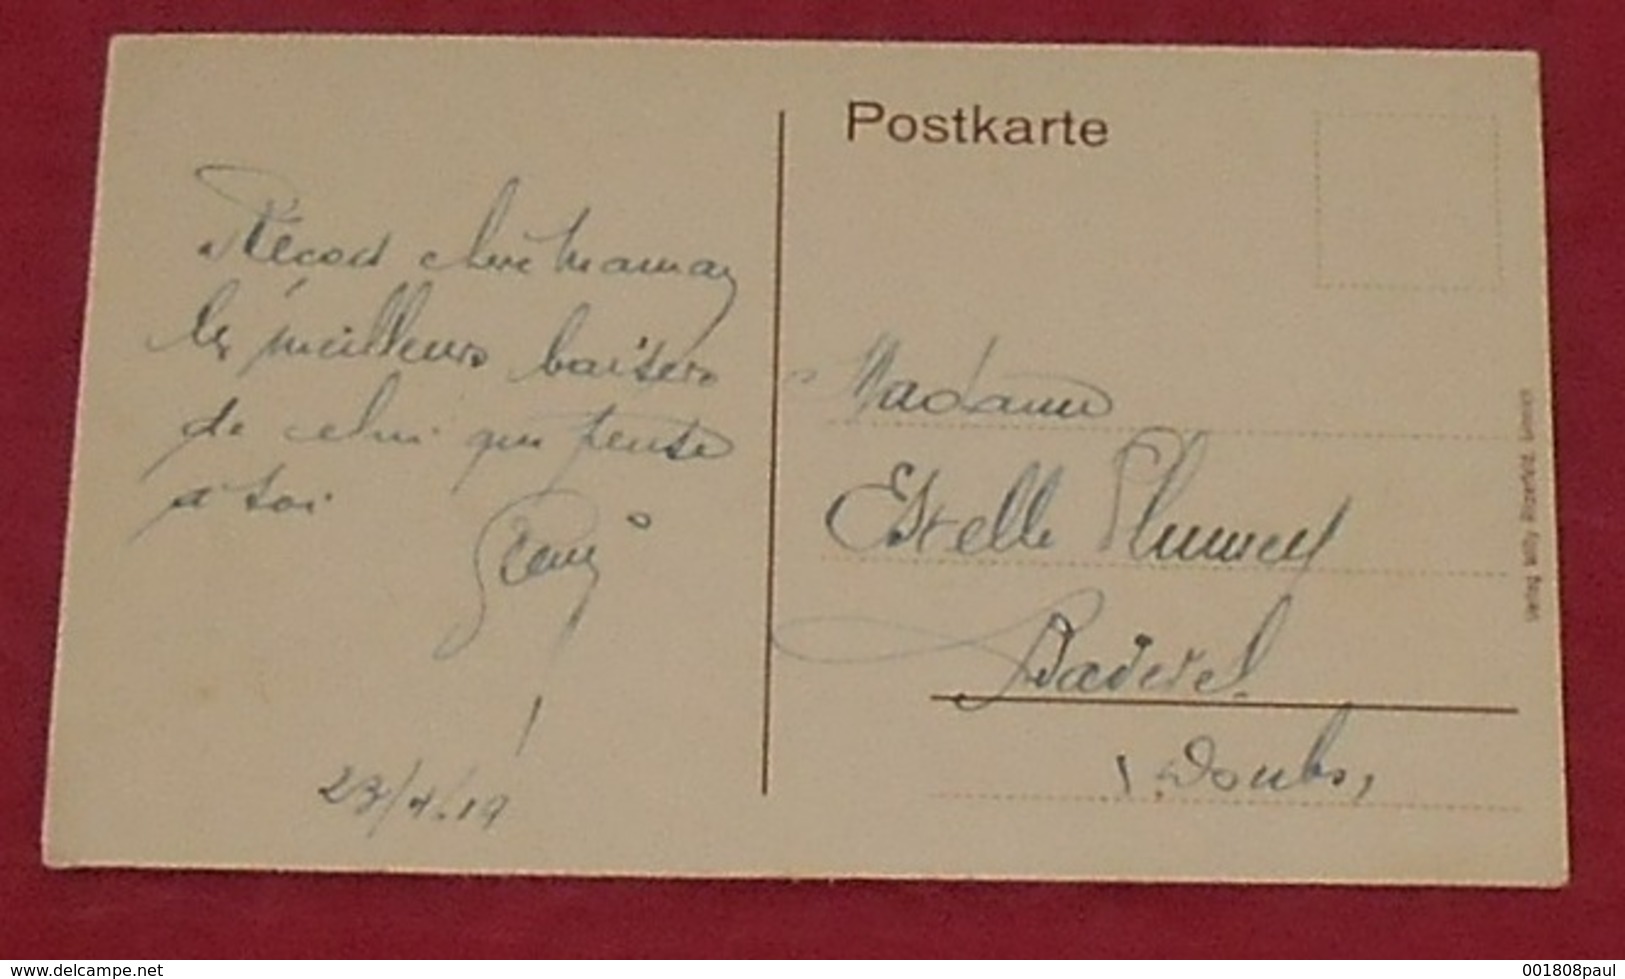 Postkarte
Récois chère Maman
les meilleurs baisers
de celui qui pense
à toi
Remy
23/4/19
Madame
Estelle
Badevel
Doubs,
Verlag Willy
www.delcampe.net
001808paul